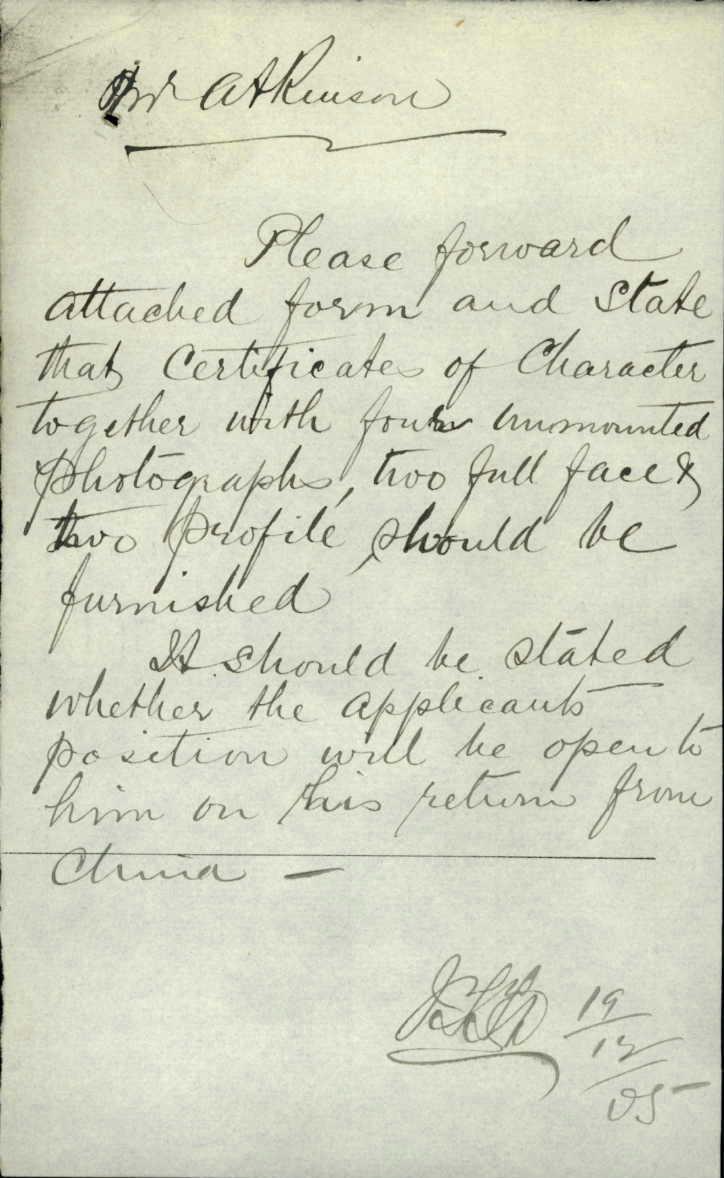 Mr Atkinson
Please forward
attached form and state
that Certificates of Character
together with four unmounted
photographs, two full face &
two profile, should be
furnished
It should be stated
whether the applicants
position will be open to
him on his return from
China —
19
12
05